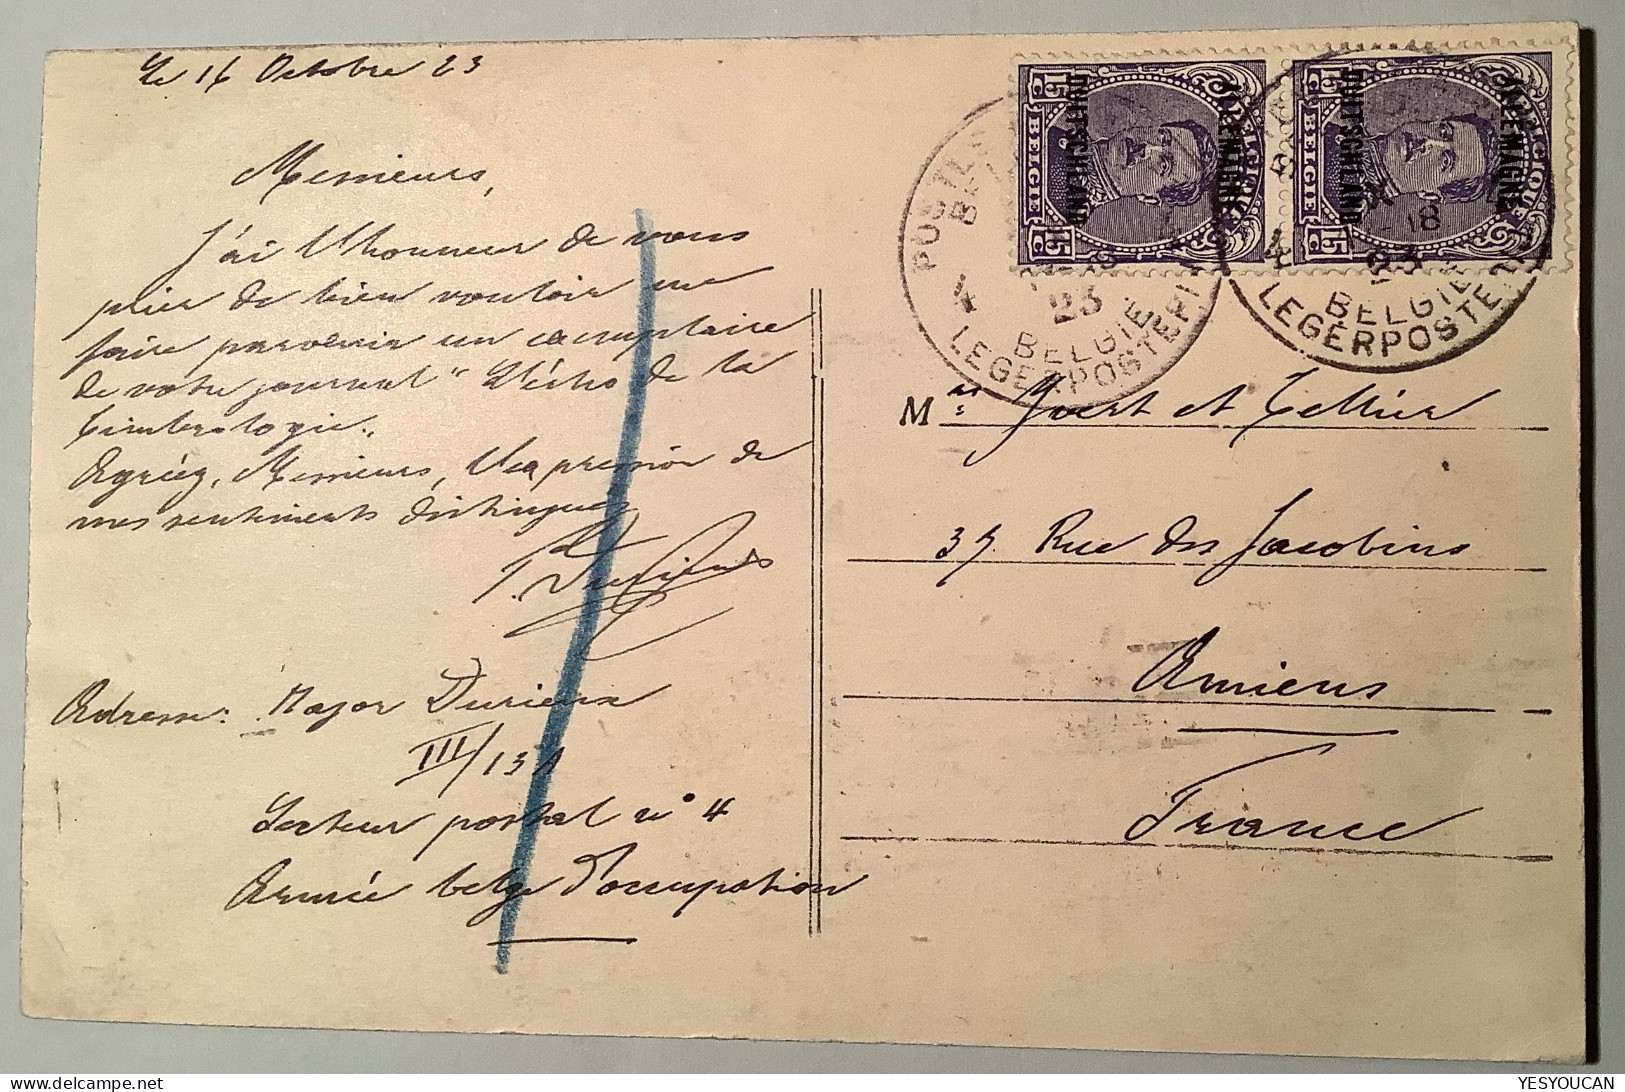 Le 16 Octobre 23
Messieurs,
J'ai l'honneur de vous
prier de bien vouloir me
faire parvenir un exemplaire
de votre journal "L'écho de la
timbrologie".
Agréez, Messieurs, l'expression de
mes sentiments distingués
Durieux
Adresse: Major Durieux
III/13
Secteur postal n° 4
Armée belge d'occupation
15 BELGIE 15
C C
DUITSCHLAND
ALLEMAGNE
BELGIQUE
15 BELGIE 15
C C
DUITSCHLAND
ALLEMAGNE
BELGIQUE
4
23
BELGIE
LEGERPOSTERIJ
4
18
23
BELGIE
LEGERPOSTERIJ
Mrs: Yvert et Tellier
37. Rue des Jacobins
Amiens
France
YESYOUCAN